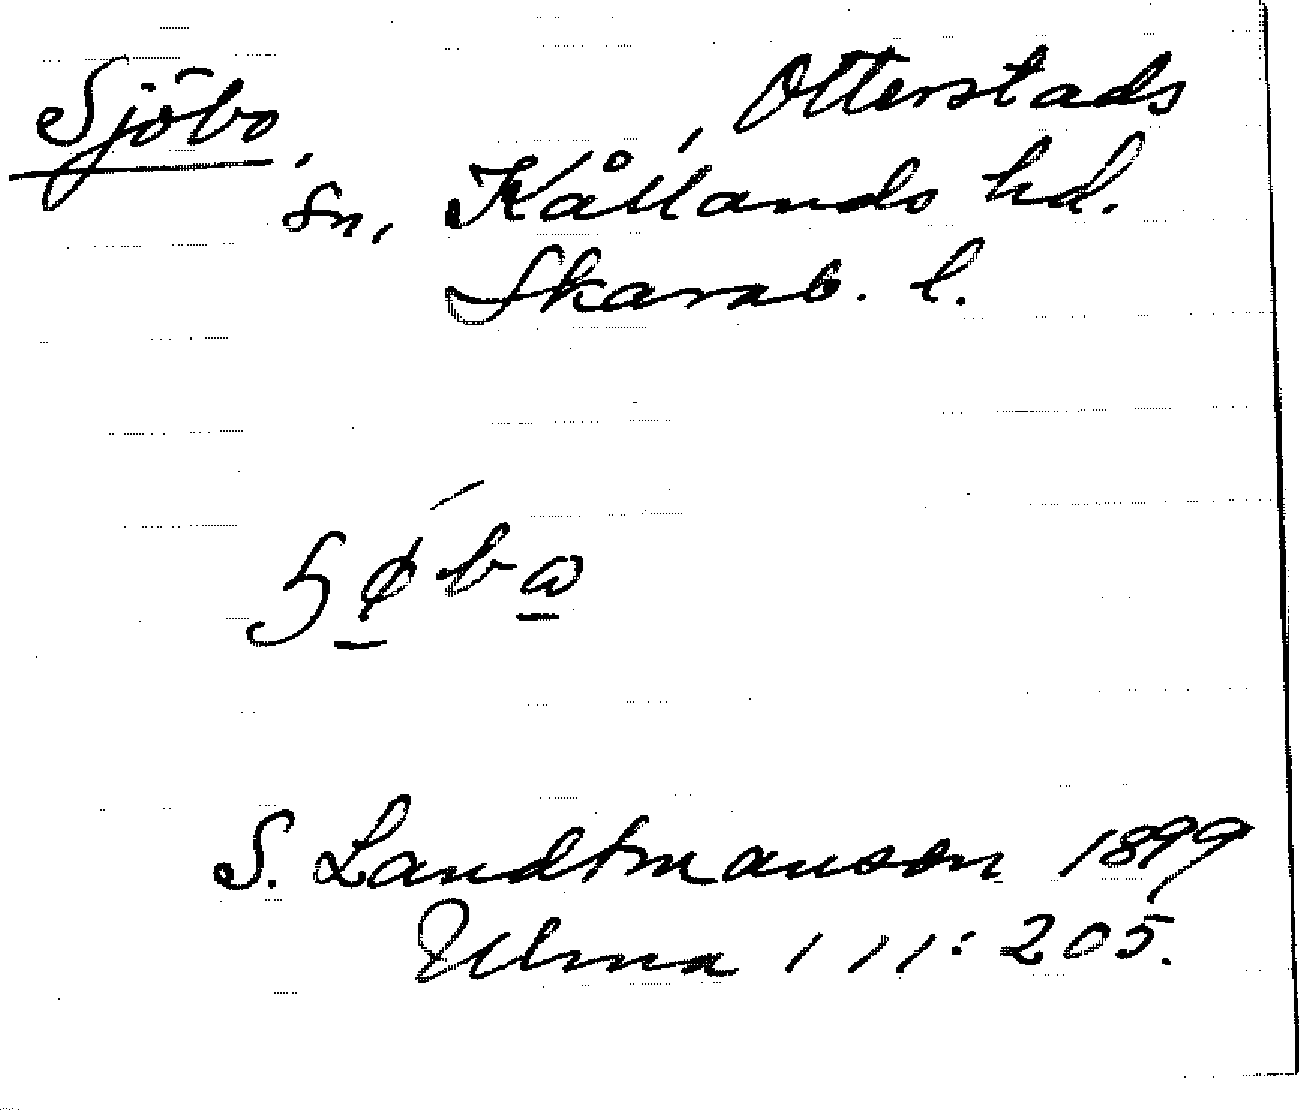 Sjöbo, Otterstads
sn, Kållands hd.
Skarab. l.
S. Landtmanson 1899
Ulma 111:205.